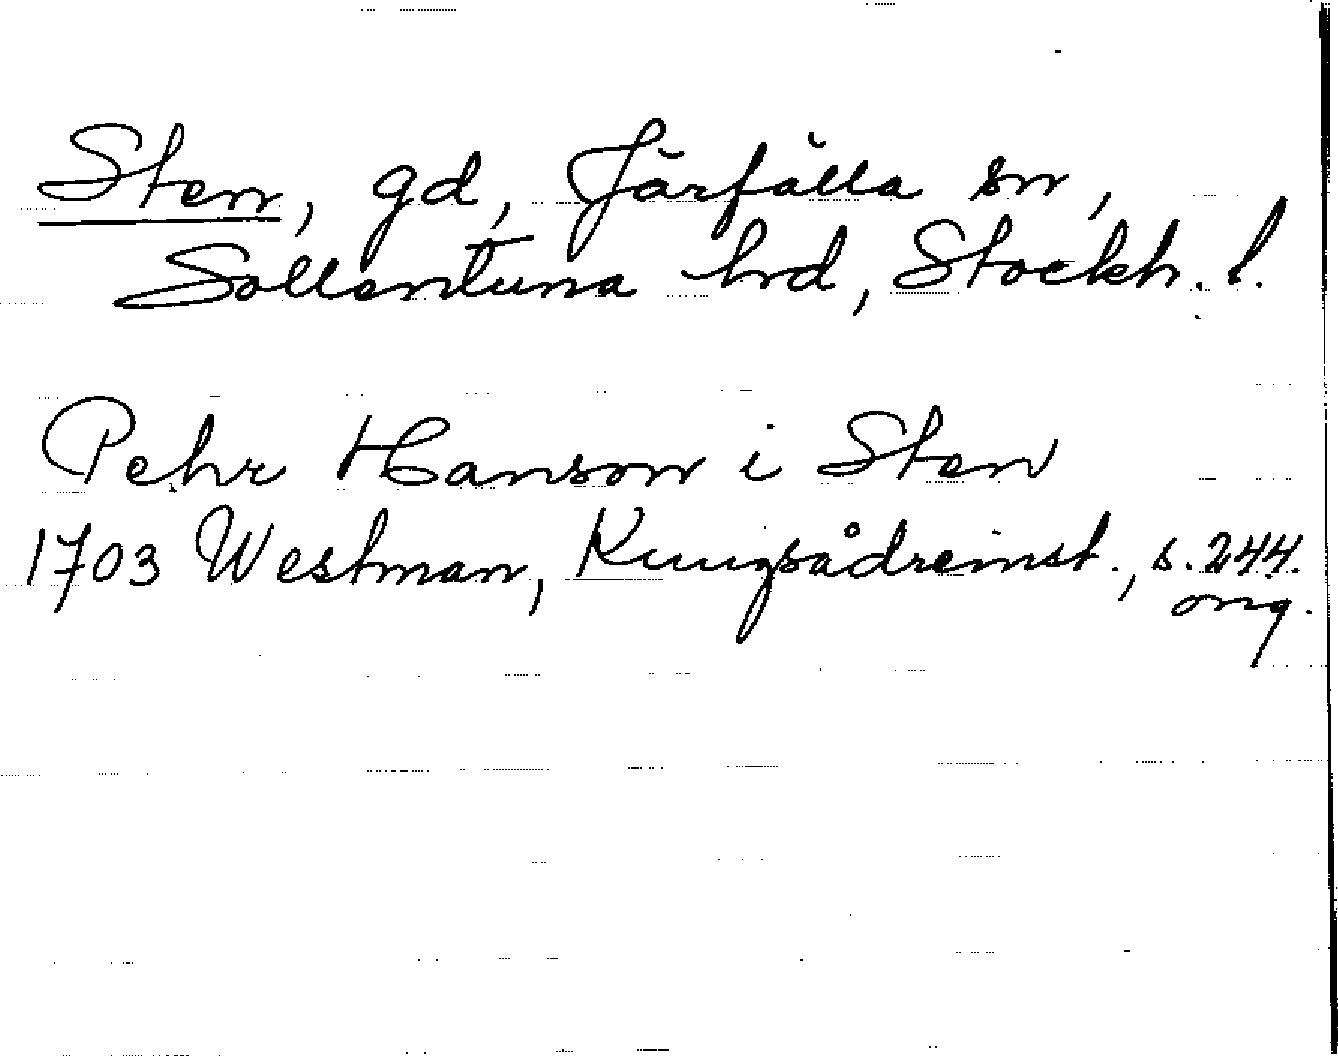 Sten, gd, Järfälla sn,
Sollentuna hrd, Stockh. l.
Pehr Hanson i Sten
1703 Westman, Kungsådreinst., s. 244.
orig.